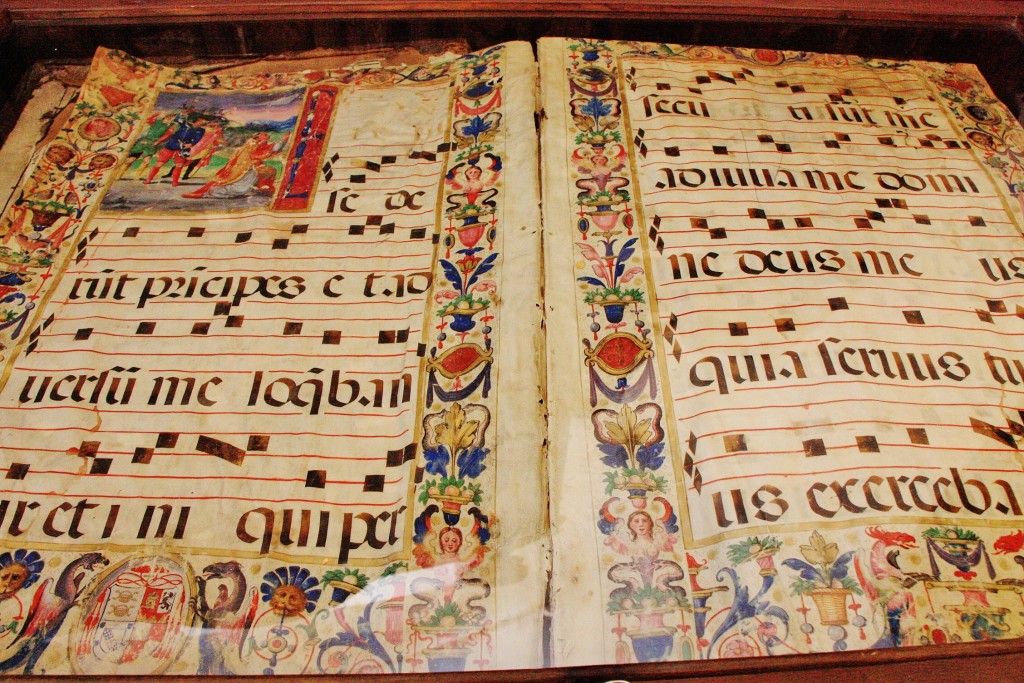 se de
rūt prīcipes e t ad
uersū me loq̄ban
ur et i ni qui per
secu ti sūt me
adiuua me domi
ne deus me us
quia seruus tu
us exerceba